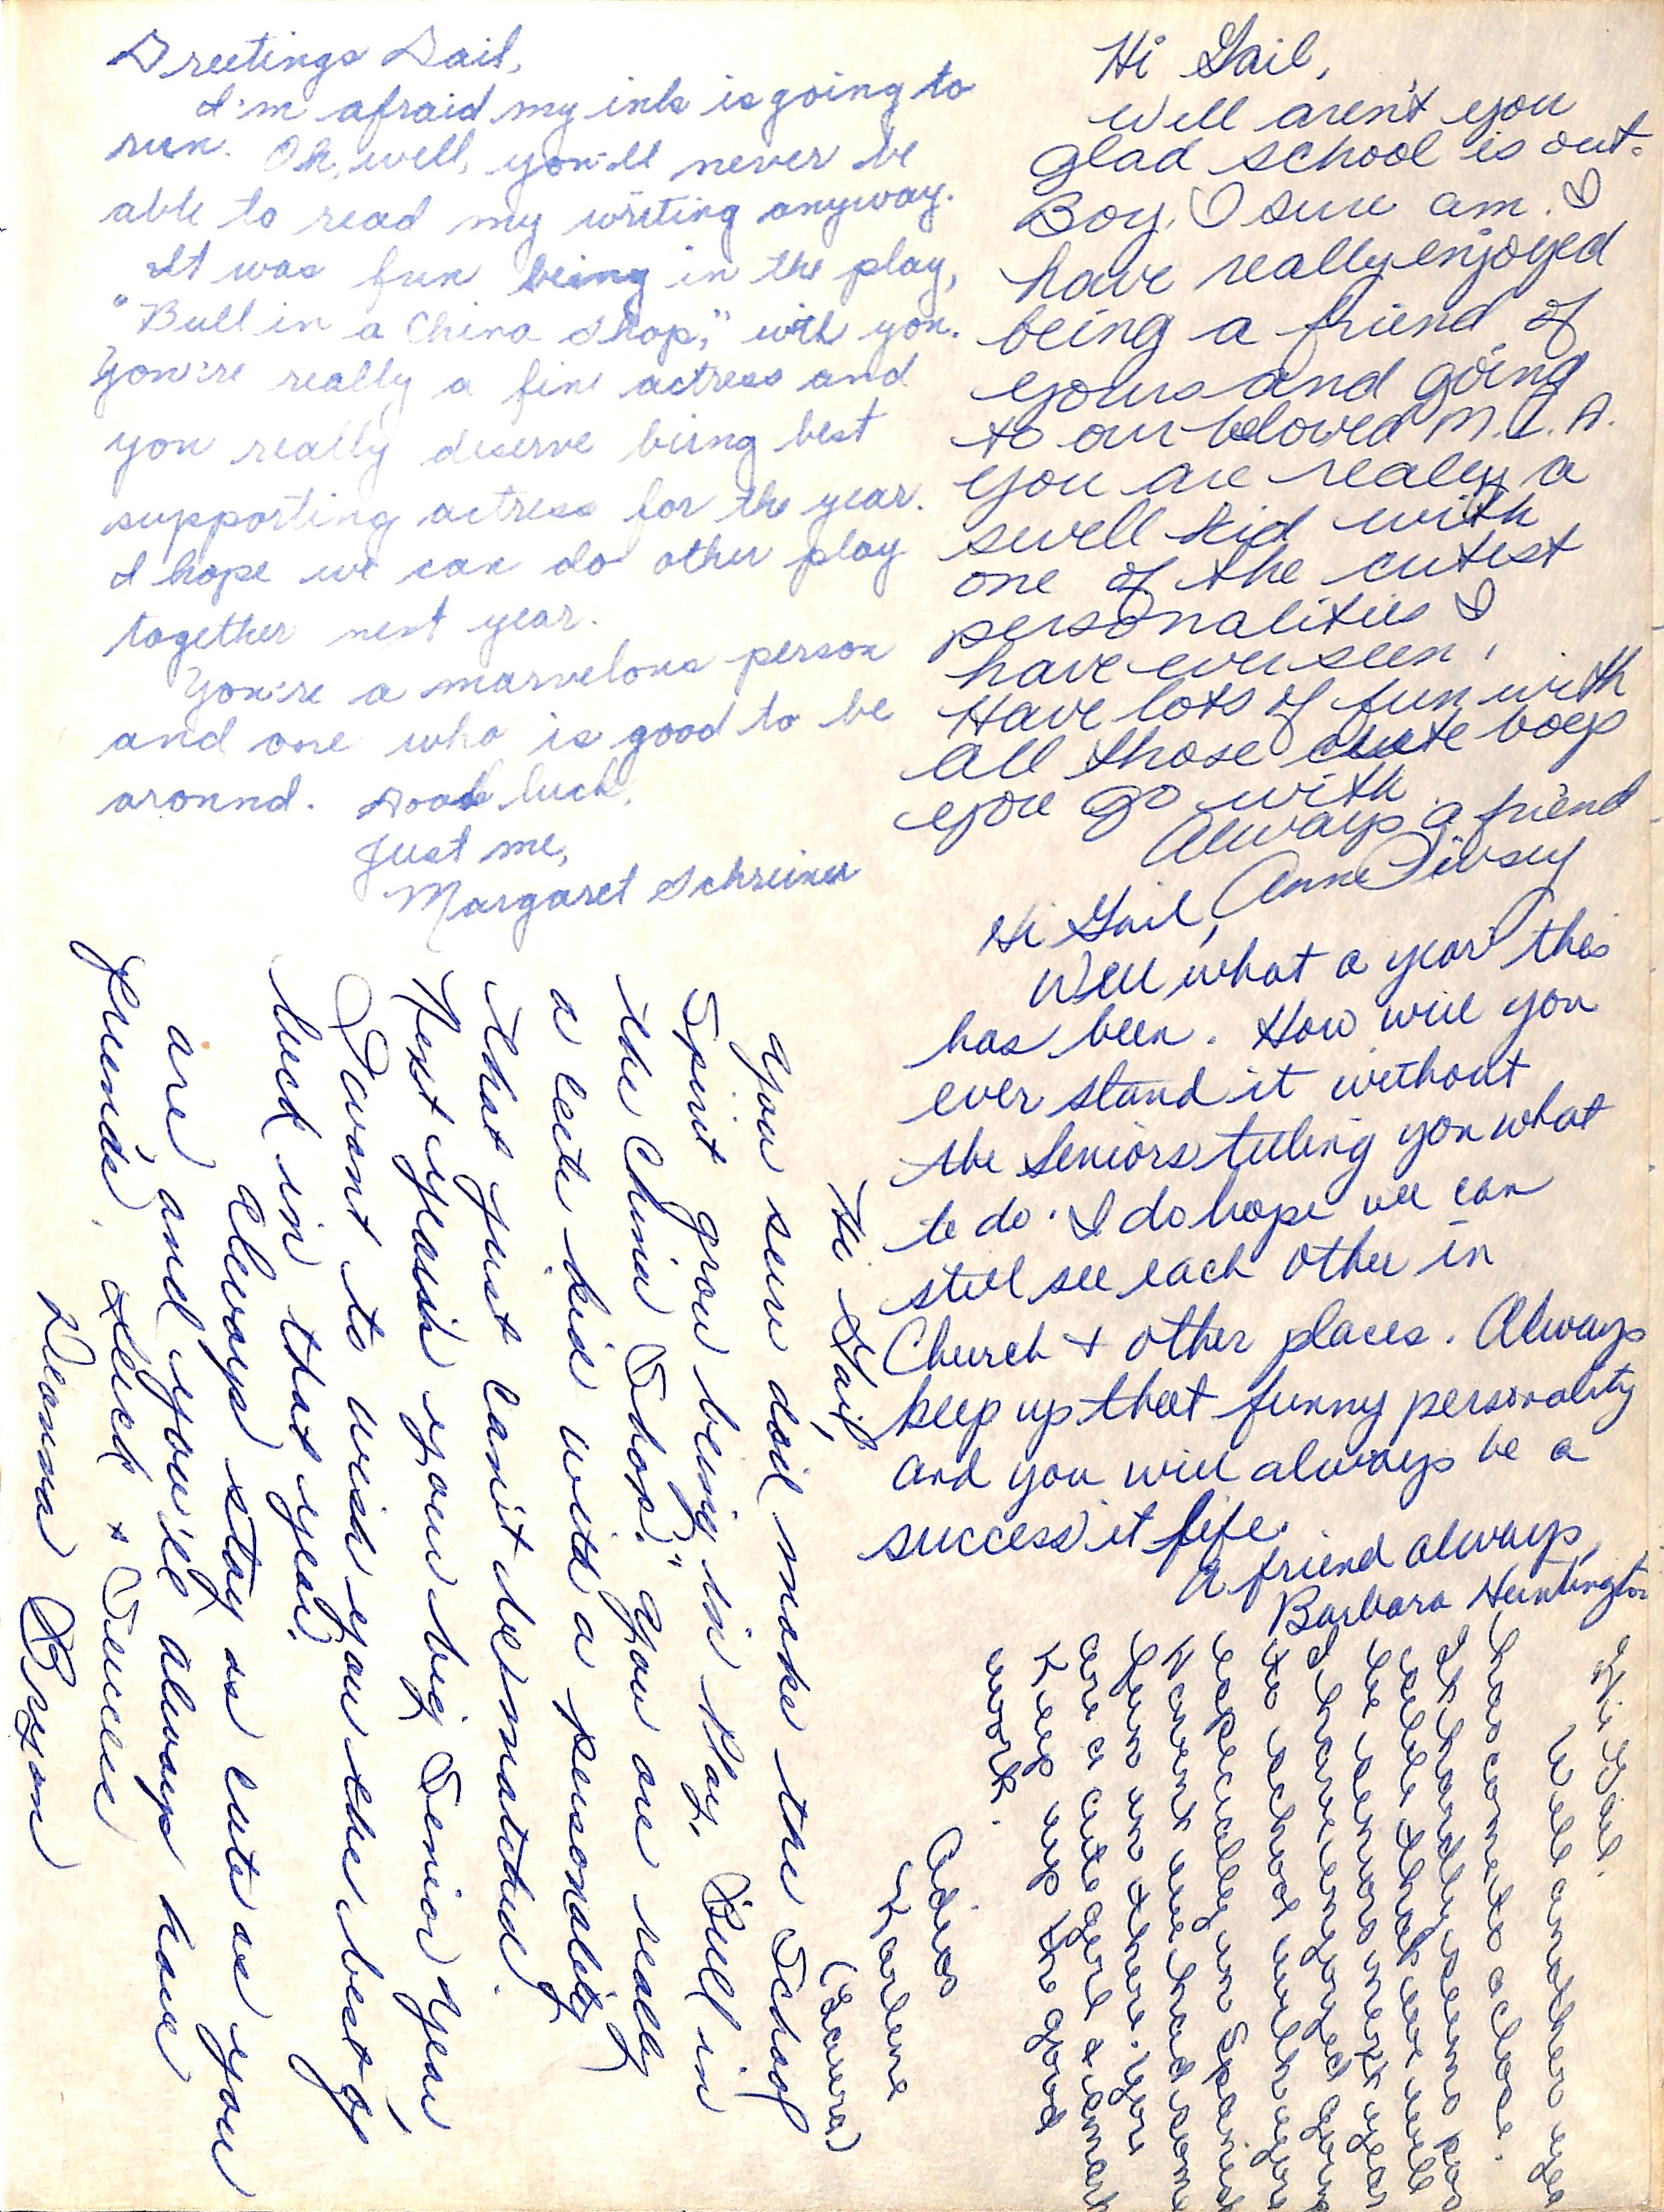 Greetings Gail,
I'm afraid my ink is going to
run. Oh, well, you'll never be
able to read my writing anyway.
It was fun being in the play,
"Bull in a China Shop," with you.
You're really a fine actress and
you really deserve being best
supporting actress for the year.
I hope we can do other play
together next year.
You're a marvelous person
and one who is good to be
around. Good luck,
Just me,
Margaret Schreiner
Hi Gail,
Well aren't you
glad school is out.
Boy, I sure am. I
have really enjoyed
being a friend of
yours and going
to our beloved M.C.A.
You are really a
swell kid with
one of the cutest
personalities I
have ever seen.
Have lots of fun with
all those cute boys
you go with.
Always a friend
Anne
Hi Gail,
Well what a year this
has been. How will you
ever stand it without
the Seniors telling you what
to do. I do hope we can
still see each other in
Church + other places. Always
keep up that funny personality
and you will always be a
success it life.
A friend always,
Barbara Huntington
Hi Gail,
You sure do make the
Spirit grow being in Play, Bull in
the China Shop." You are really
a cute kid with a personality
that just can't be matched.
Next year you big Senior you
I want to wish you the best of
luck in that year.
Always stay as cute as you
are and you'll always have
friends. Luck + Success
Deanna Bryson
Hi Gail.
Well another ye
has come to a close.
It hardly seems pos
sible that we will
be seniors next year
I have enjoyed going
to school with you
especially in Spanish
Haven't we had some
fun in there. You
are a cute girl & smart
Keep up the good
work.
Adios
Karlene
(Laura)